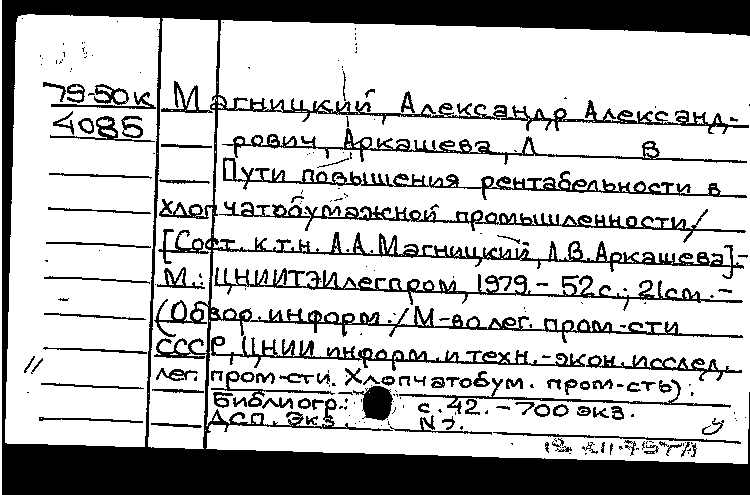 79-50к Магницкий, Александр Александ-
4085 рович, Аркашева, Л В
Пути повышения рентабельности в
хлопчатобумажной промышленности/
[Сост. к.т.н. А.А.Магницкий, Л.В.Аркашева].-
М.: ЦНИИТЭИлегпром, 1979.- 52с.; 21см.-
(Обзор. информ./М-во лег. пром-сти
СССР, ЦНИИ информ. и техн.-экон. исслед.
лег. пром-сти. Хлопчатобум. пром-сть).
Библиогр.: с.42. - 700 экз.
ДСП. Экз. N